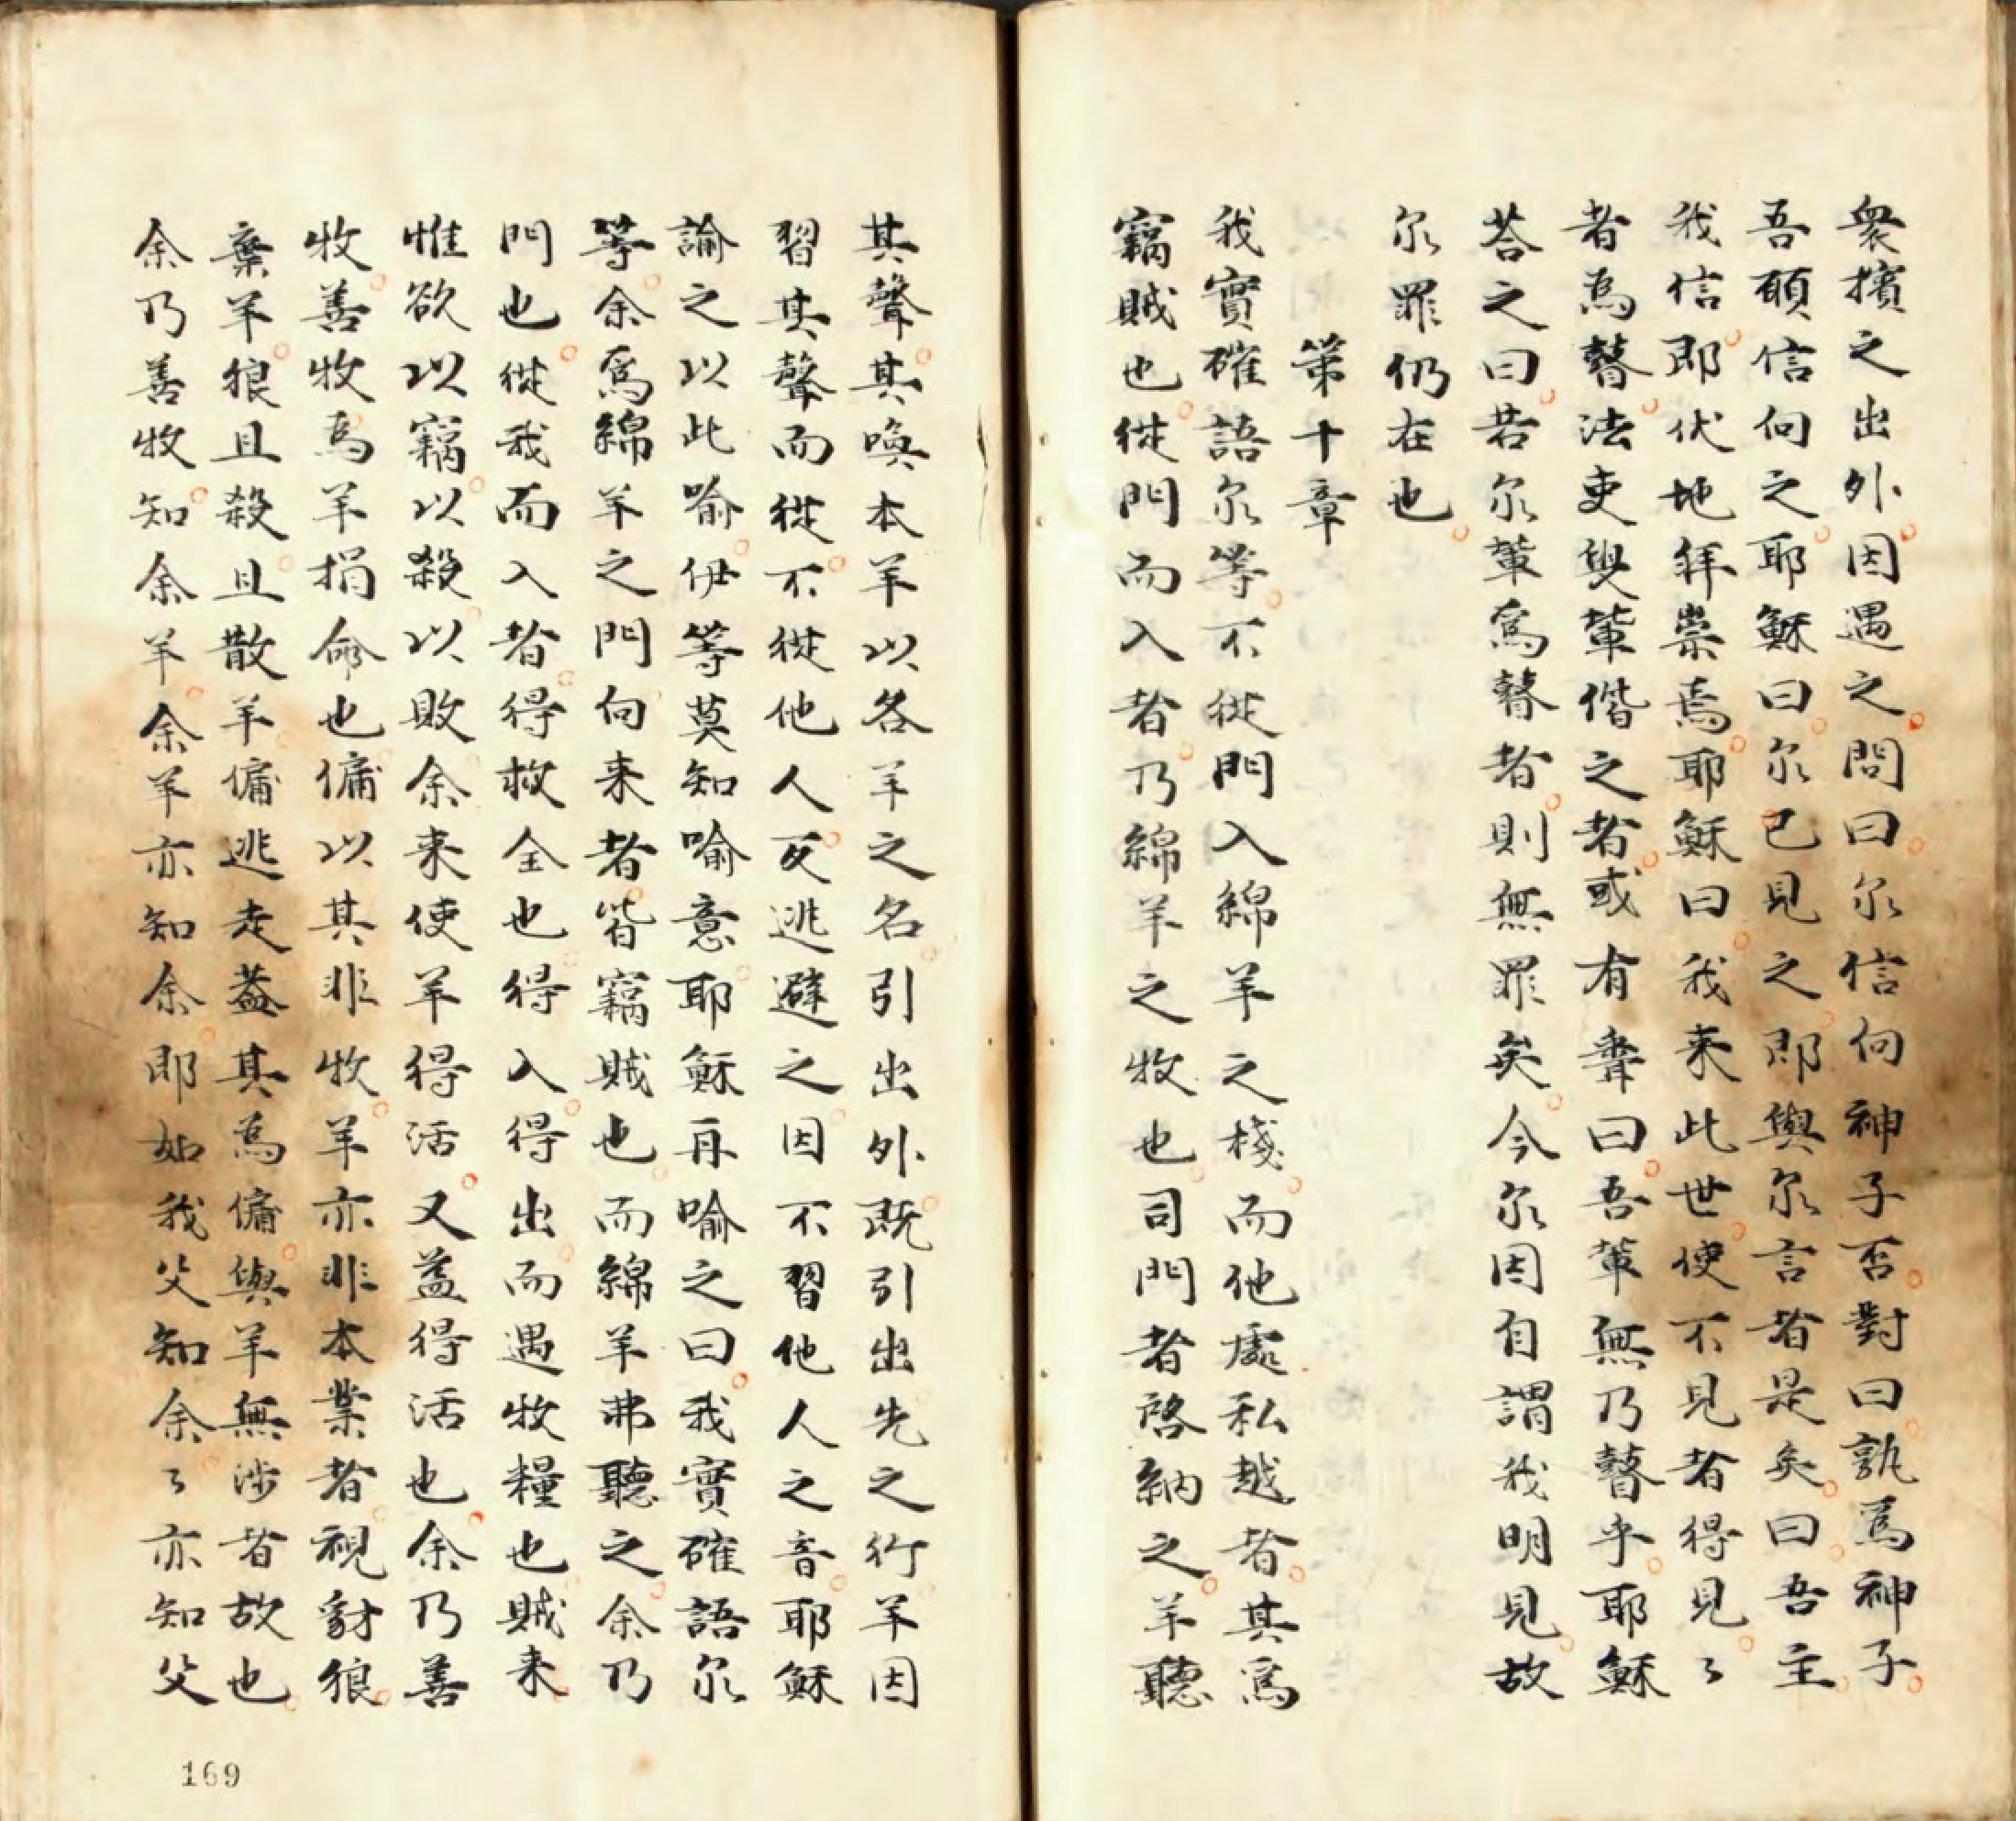 衆擯之出外因遇之問曰尔信向神子否對曰孰爲神子
吾願信向之耶穌曰尔已見之即與尔言者是矣曰吾主
我信即伏地拜崇焉耶穌曰我来此世使不見者得見〻
者為瞽法吏與輩偕之者或有聲曰吾輩無乃瞽乎耶穌
荅之曰若尔輩爲瞽者則無罪矣今尔因自謂我明見故
尔罪仍在也
第十章
我實確語尔等不從門入綿羊之棧而他處私越者其爲
竊賊也從門而入者乃綿羊之牧也司門者啓納之羊聽
其聲其喚本羊以各羊之名引出外既引出先之行羊因
習其聲而從不從他人反逃避之因不習他人之音耶穌
諭之以此喻伊等莫知喻意耶穌再喻之曰我實確語尔
等余爲綿羊之門向来者皆竊賊也而綿羊弗聽之余乃
門也從我而入者得救全也得入得出而遇牧糧也賊来
惟欲以竊以殺以敗余来使羊得活又益得活也余乃善
牧善牧為羊捐命也傭以其非牧羊亦非本業者視豺狼
棄羊狼且殺且散羊傭逃走葢其為傭與羊無涉者故也
余乃善牧知余羊余羊亦知余即如我父知余〻亦知父
169